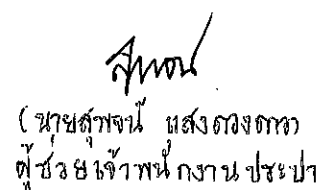 (นายสุพจน์ แสงดวงดาว)
ผู้ช่วยเจ้าพนักงานประปา